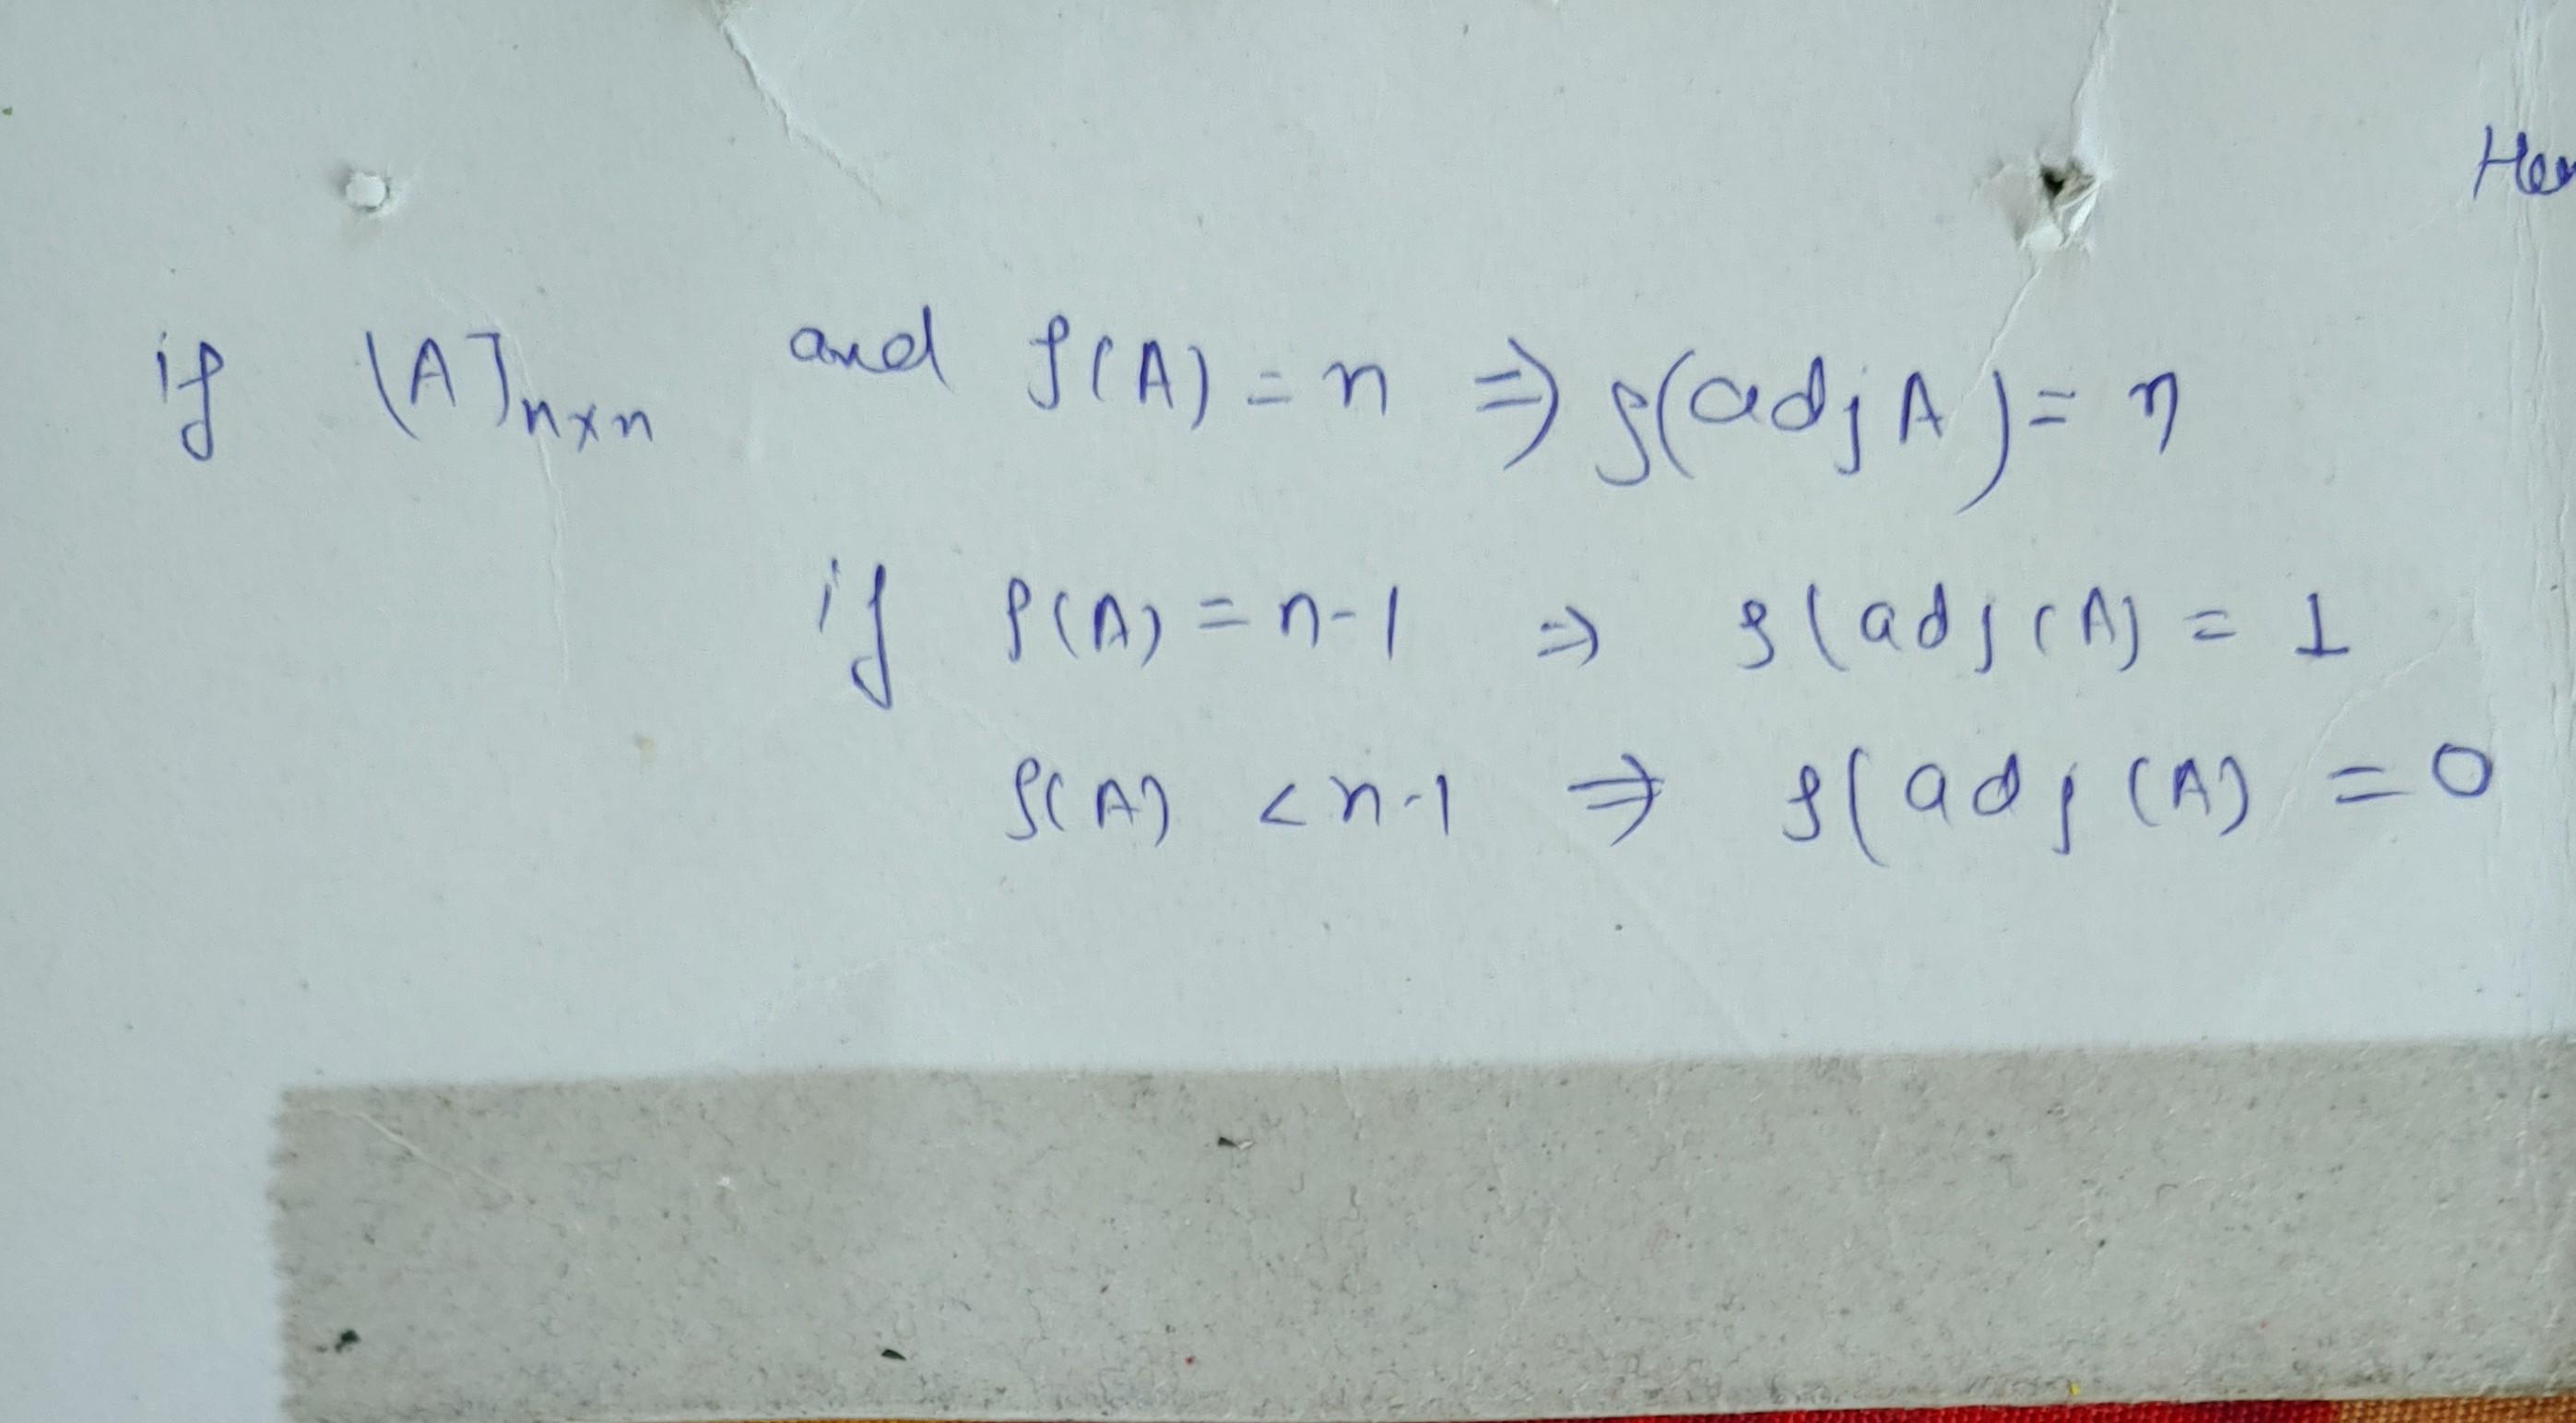 if [A]n×n and ρ(A) = n ⇒ ρ(adj A) = n
if ρ(A) = n-1 ⇒ ρ(adj(A) = 1
ρ(A) < n-1 ⇒ ρ(adj(A) = 0